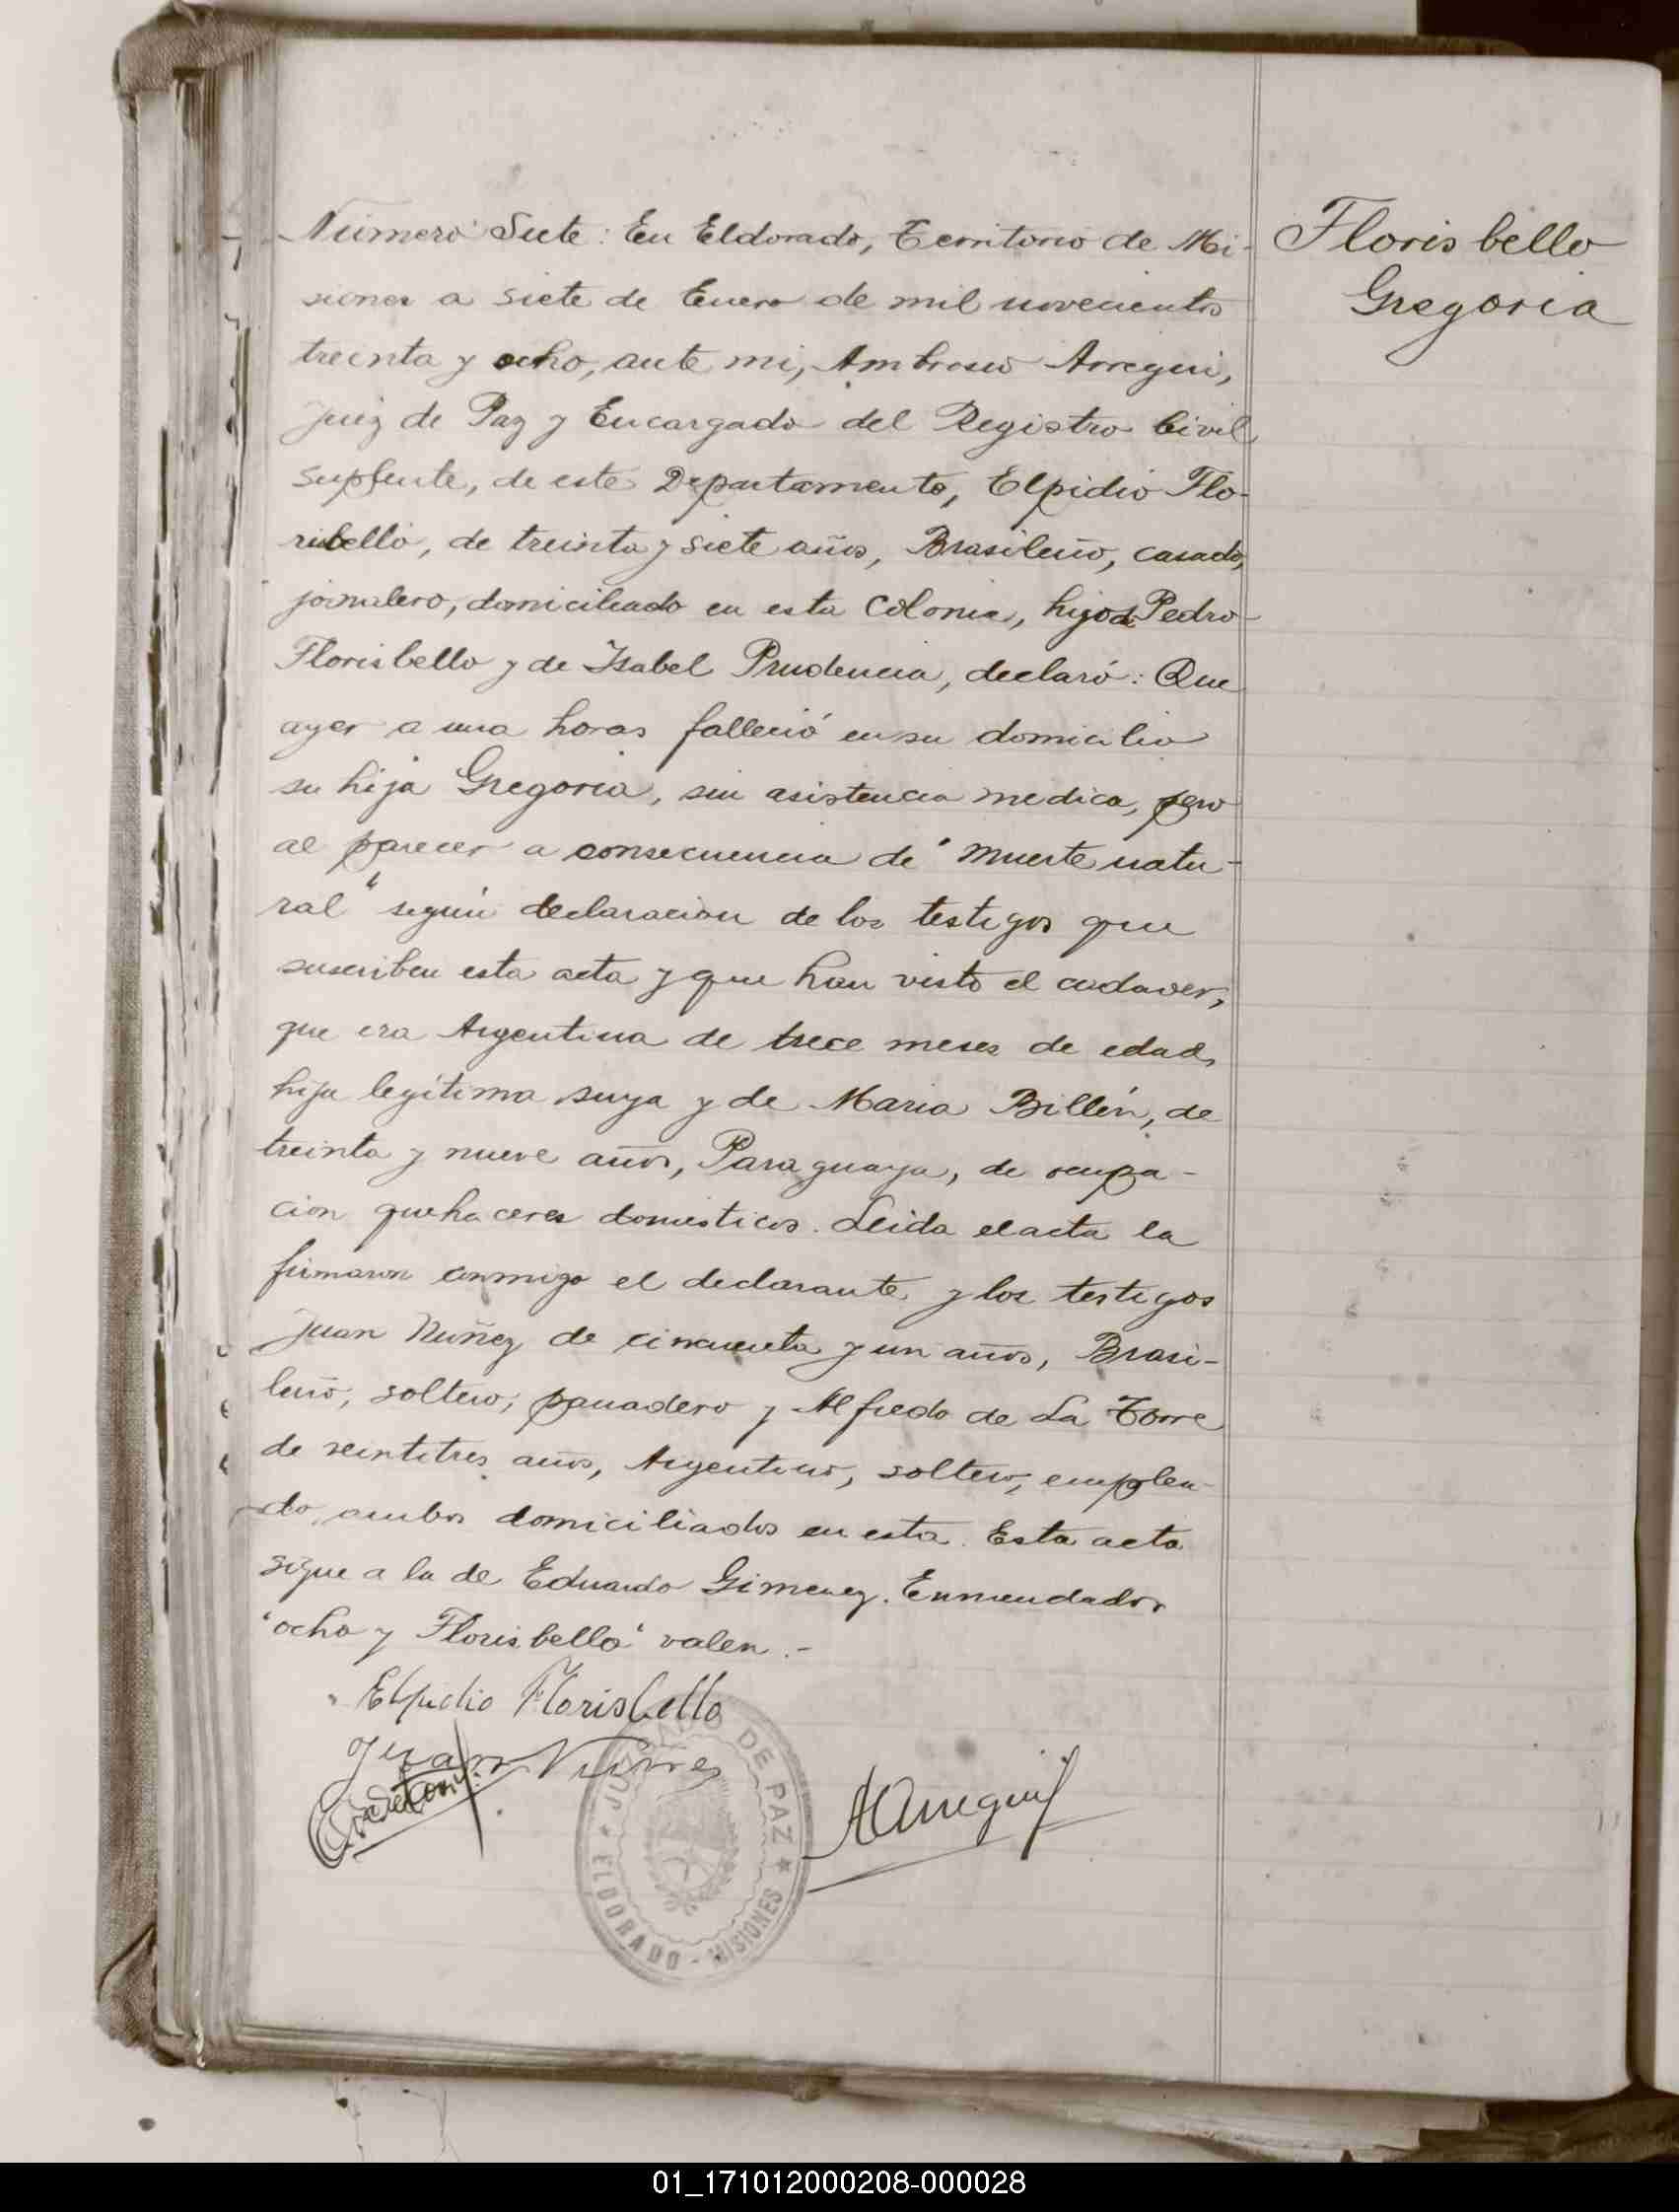 Número Siete: En Eldorado, Territorio de Mi-
siones a siete de Enero de mil novecientos
treinta y ocho, ante mi, Ambrosio Arregui,
Juez de Paz y Encargado del Registro Civil
Suplente, de este Departamento, Elpidio Flo-
risbello, de treinta y siete años, Brasileño, casado,
jornalero, domiciliado en esta Colonia, hijo de Pedro
Florisbello y de Isabel Prudencia, declaró: Que
ayer a una horas falleció en su domicilio
su hija Gregoria, sin asistencia medica, pero
al parecer a consecuencia de "Muerte natu-
ral" según declaracion de los testigos que
suscriben esta acta y que han visto el cadaver,
que era Argentina de trece meses de edad,
hija legítima suya y de Maria Billén, de
treinta y nueve años, Paraguaya, de ocupa-
cion quehaceres domesticos. Leida el acta la
firmaron conmigo el declarante y los testigos
Juan Nuñez de cincuenta y un años, Brasi-
leño, soltero, panadero y Alfredo de La Torre
de veintitres años, Argentino, soltero, emplea-
do, ambos domiciliados en esta. Esta acta
sigue a la de Eduardo Gimenez. Enmendados
"ocho y Florisbello" valen.-
Elpidio Florisbello
Juan Nunes
AArregui
JUZGADO DE PAZ
ELDORADO - MISIONES
Florisbello
Gregoria
01_171012000208-000028